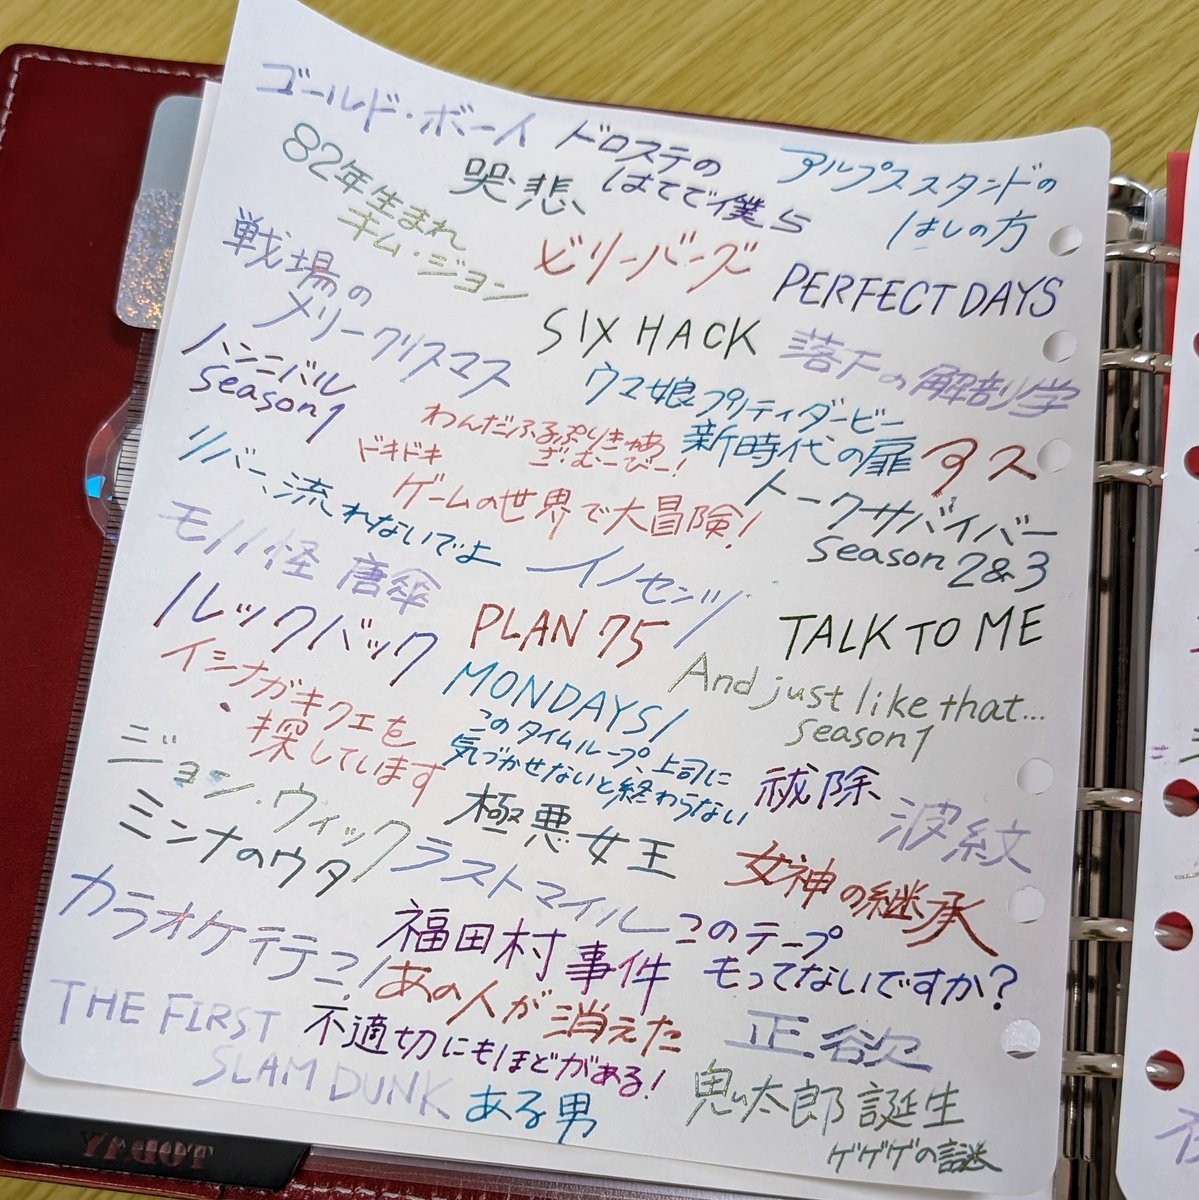 ゴールド・ボーイ
ドロステの
はてで僕ら
アルプススタンドの
はしの方
82年生まれ
キム・ジヨン
哭悲
ビリーバーズ
PERFECT DAYS
戦場の
メリークリスマス
SIX HACK
落下の解剖学
ハンニバル
season1
ウマ娘プリティダービー
新時代の扉
アス
わんだふるぷりきゅあ
ざむーびー!
ドキドキ
ゲームの世界で大冒険!
トークサバイバー
season2&3
リバー、流れないでよ
イノセンツ
モノノ怪 唐傘
ルックバック
PLAN 75
TALK TO ME
イシナガキクエを
探しています
MONDAYS/
このタイムループ、上司に
気づかせないと終わらない
And just like that...
season1
祓除
波紋
ジョン・ウィック
極悪女王
女神の継承
ミンナのウタ
ラストマイル
このテープ
もってないですか?
カラオケ行こ!
福田村事件
あの人が消えた
正欲
THE FIRST
SLAM DUNK
不適切にもほどがある!
ある男
鬼太郎誕生
ゲゲゲの謎
TODAY